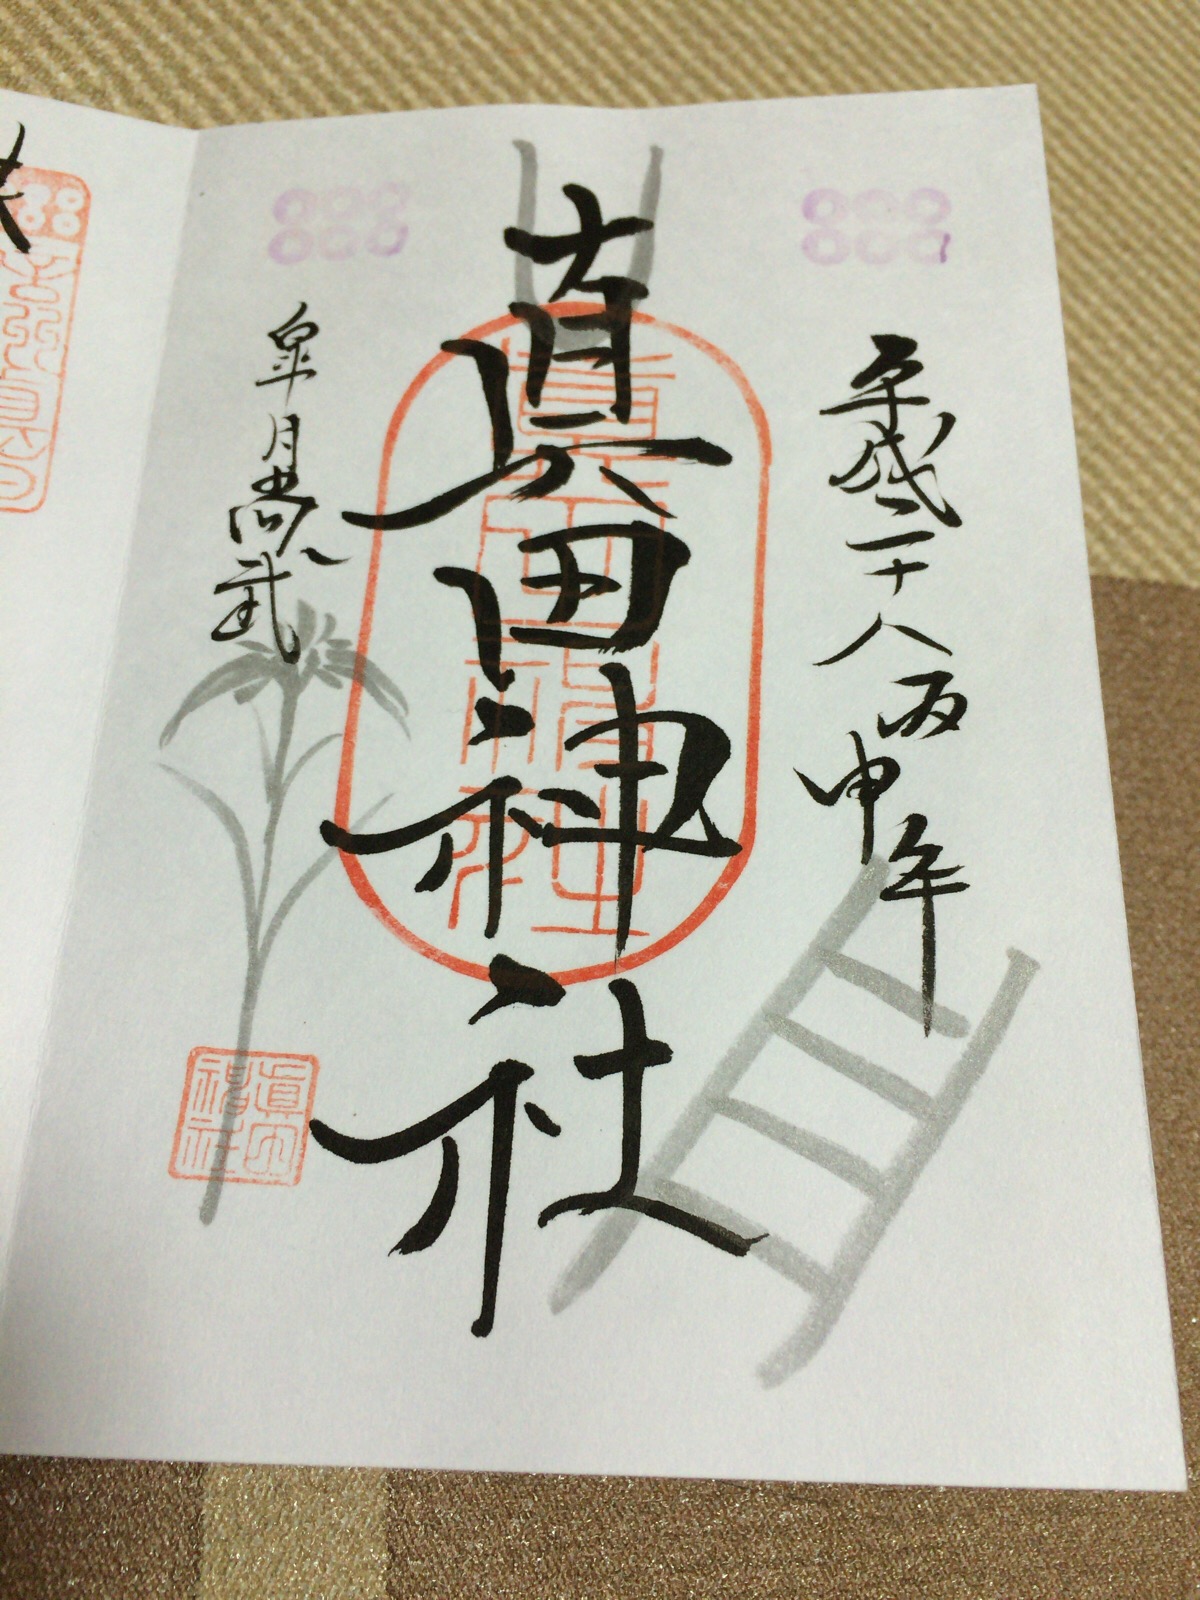 平成二十八丙申年
眞田神社
皐月尚武
眞田神社